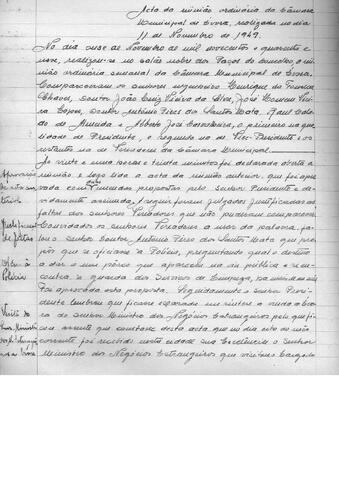 Acta da reunião ordinária da Câmara
Municipal de Evora, realizada no dia
11 de Novembro de 1949.
No dia onze de Novembro de mil novecentos e quarenta e
nove, realizou-se na sala nobre dos Paços do Concelho, a
reunião ordinária semanal da Câmara Municipal de Evora.
Compareceram os senhores engenheiro Henrique da Fonseca
Chaves, Doutor João Luiz Vieira da Silva, José
Lopes, Doutor António Pires dos Santos Mata, Raul
de Almeida e Alberto José, o primeiro na qua-
lidade de Presidente, o segundo na de Vice-Presidente e os
restantes na de Vereadores da Câmara Municipal.
Às vinte e uma horas e trinta minutos foi declarada aberta a
reunião e logo lida a acta da reunião anterior, que foi apro-
Aprovação
da acta an-
terior
vada com emendas propostas pelo senhor Presidente e de-
vidamente assinada. A seguir foram julgadas justificadas as
Justificação
de faltas
faltas dos senhores Vereadores que não puderam comparecer.
Convidados os senhores Vereadores a usar da palavra, fa-
lou o senhor Doutor António Pires dos Santos Mata que pro-
pôs que se oficiasse à Polícia, preguntando qual o destino
Ofício à
Polícia
a dar a um que apareceu na via pública e se en-
contra à guarda dos Serviços de Limpeza,
Foi aprovada esta proposta. Seguidamente o senhor Presi-
Visita do
Senhor Ministro
dos Negócios
dente lembrou que ficasse exarado em a
do senhor Ministro dos Negócios Estrangeiros pelo que fi-
cou assente que constasse desta acta, que no dia oito do mês
corrente foi recebido nesta cidade sua Excelência o Senhor
Ministro dos Negócios Estrangeiros que